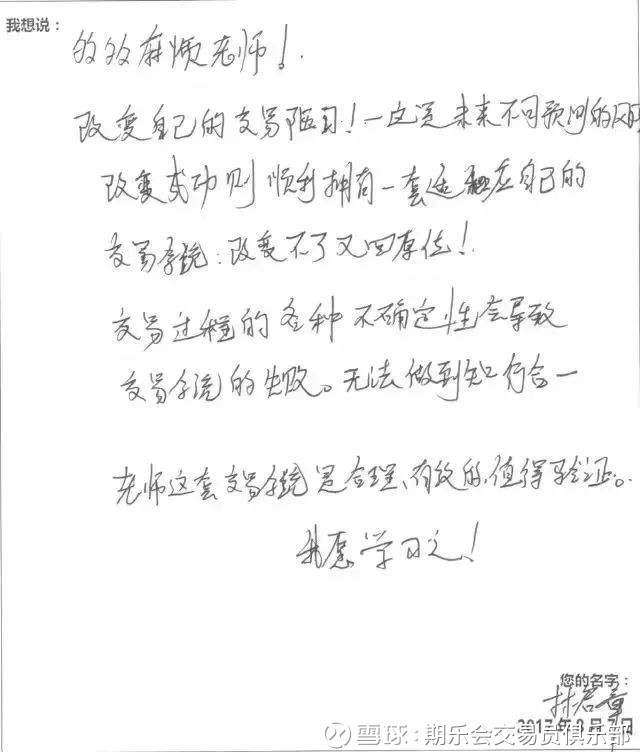 我想说：
多多麻烦老师！
改变自己的交易陋习！一边是未来不可预测的风
改变成功则顺利拥有一套适融应自己的
交易系统：改变不了又回原位！
交易过程的各种不确定性会导致
交易系统的失败。无法做到知行合一
老师这套交易系统是合理、有效的、值得验证。
我愿学习之！
您的名字：
林君章
2017年8月7日
雪球：期乐会交易员俱乐部